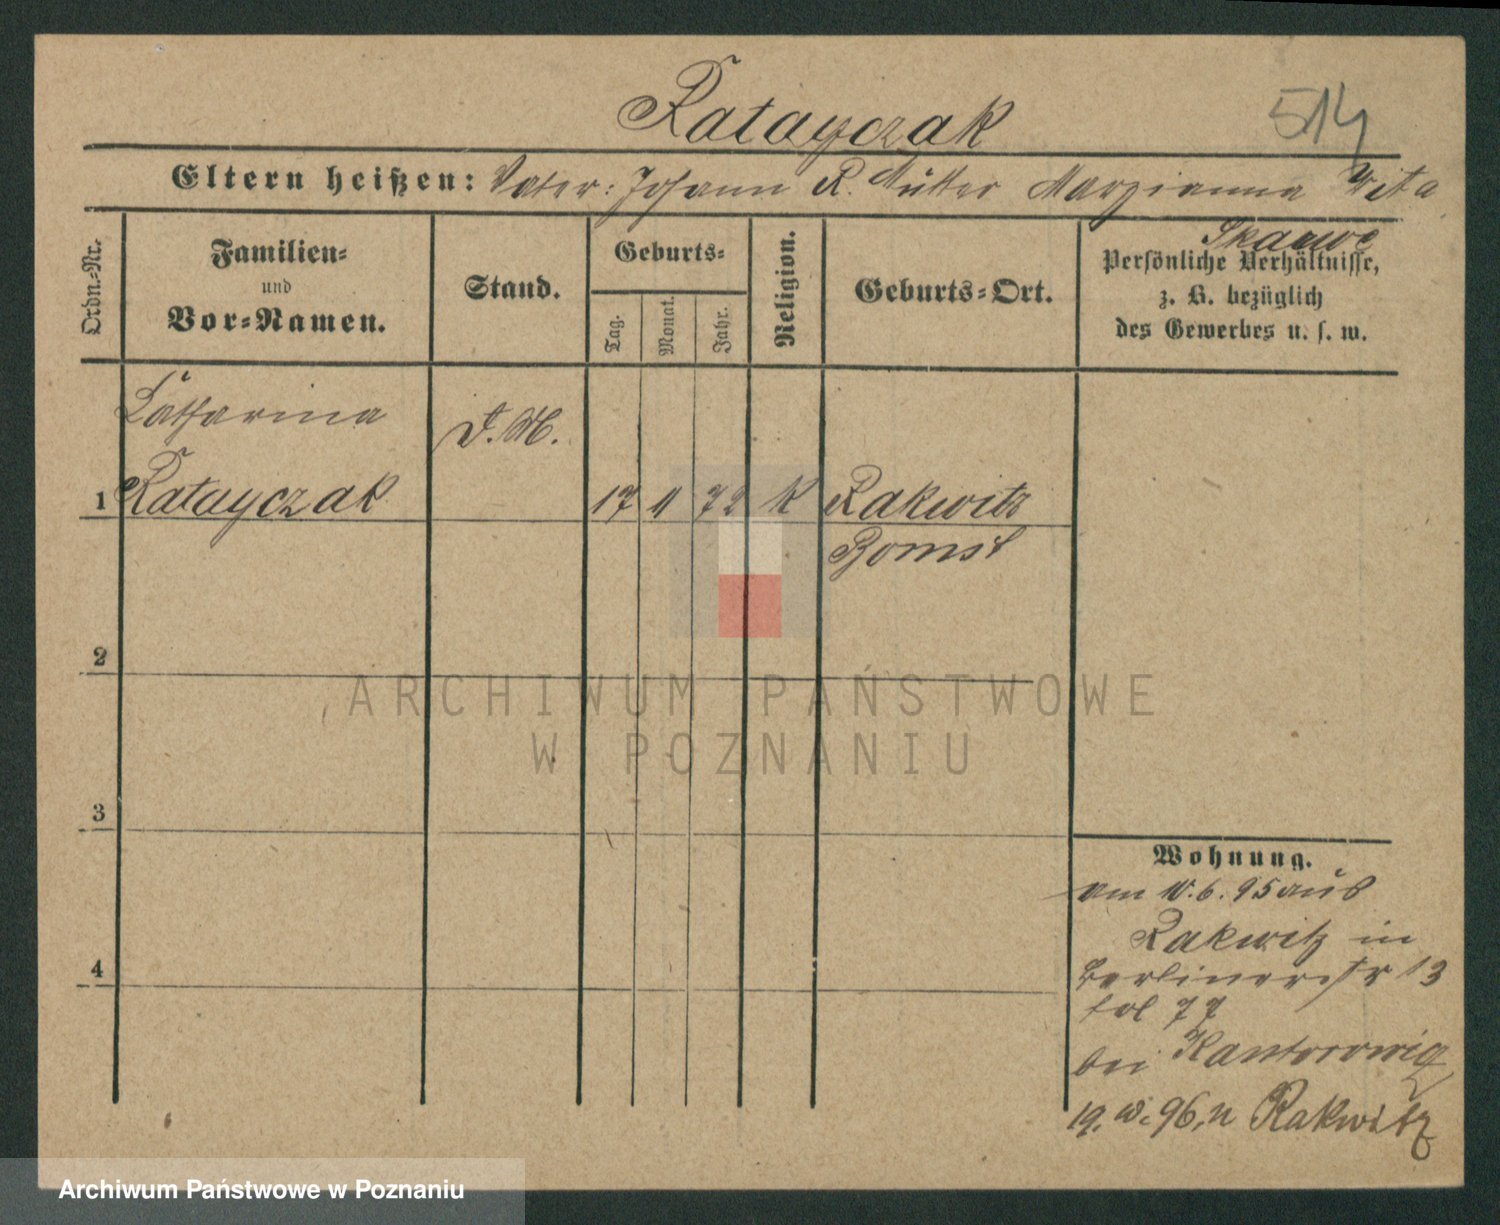 Ratayczak
514
Eltern heißen: Vater: Johann R. Mutter Marzianna Wita
Skarwe
Ordn.-Nr.
Familien- und Vor-Namen.
Stand.
Geburts-
Tag.
Monat.
Jahr.
Religion.
Geburts-Ort.
Persönliche Verhältnisse,
z. B. bezüglich
des Gewerbes u. s. w.
Catharina
D. M.
1 Ratayczak 17 11 72 K Rakwitz
Bomst
2
3
4
ARCHIWUM PAŃSTWOWE
W POZNANIU
Wohnung.
am 10.6.95 aus
Rakwitz in
Berlinerstr 13
fol 77
bei Kantorowicz
19. 96, n Rakwitz
Archiwum Państwowe w Poznaniu